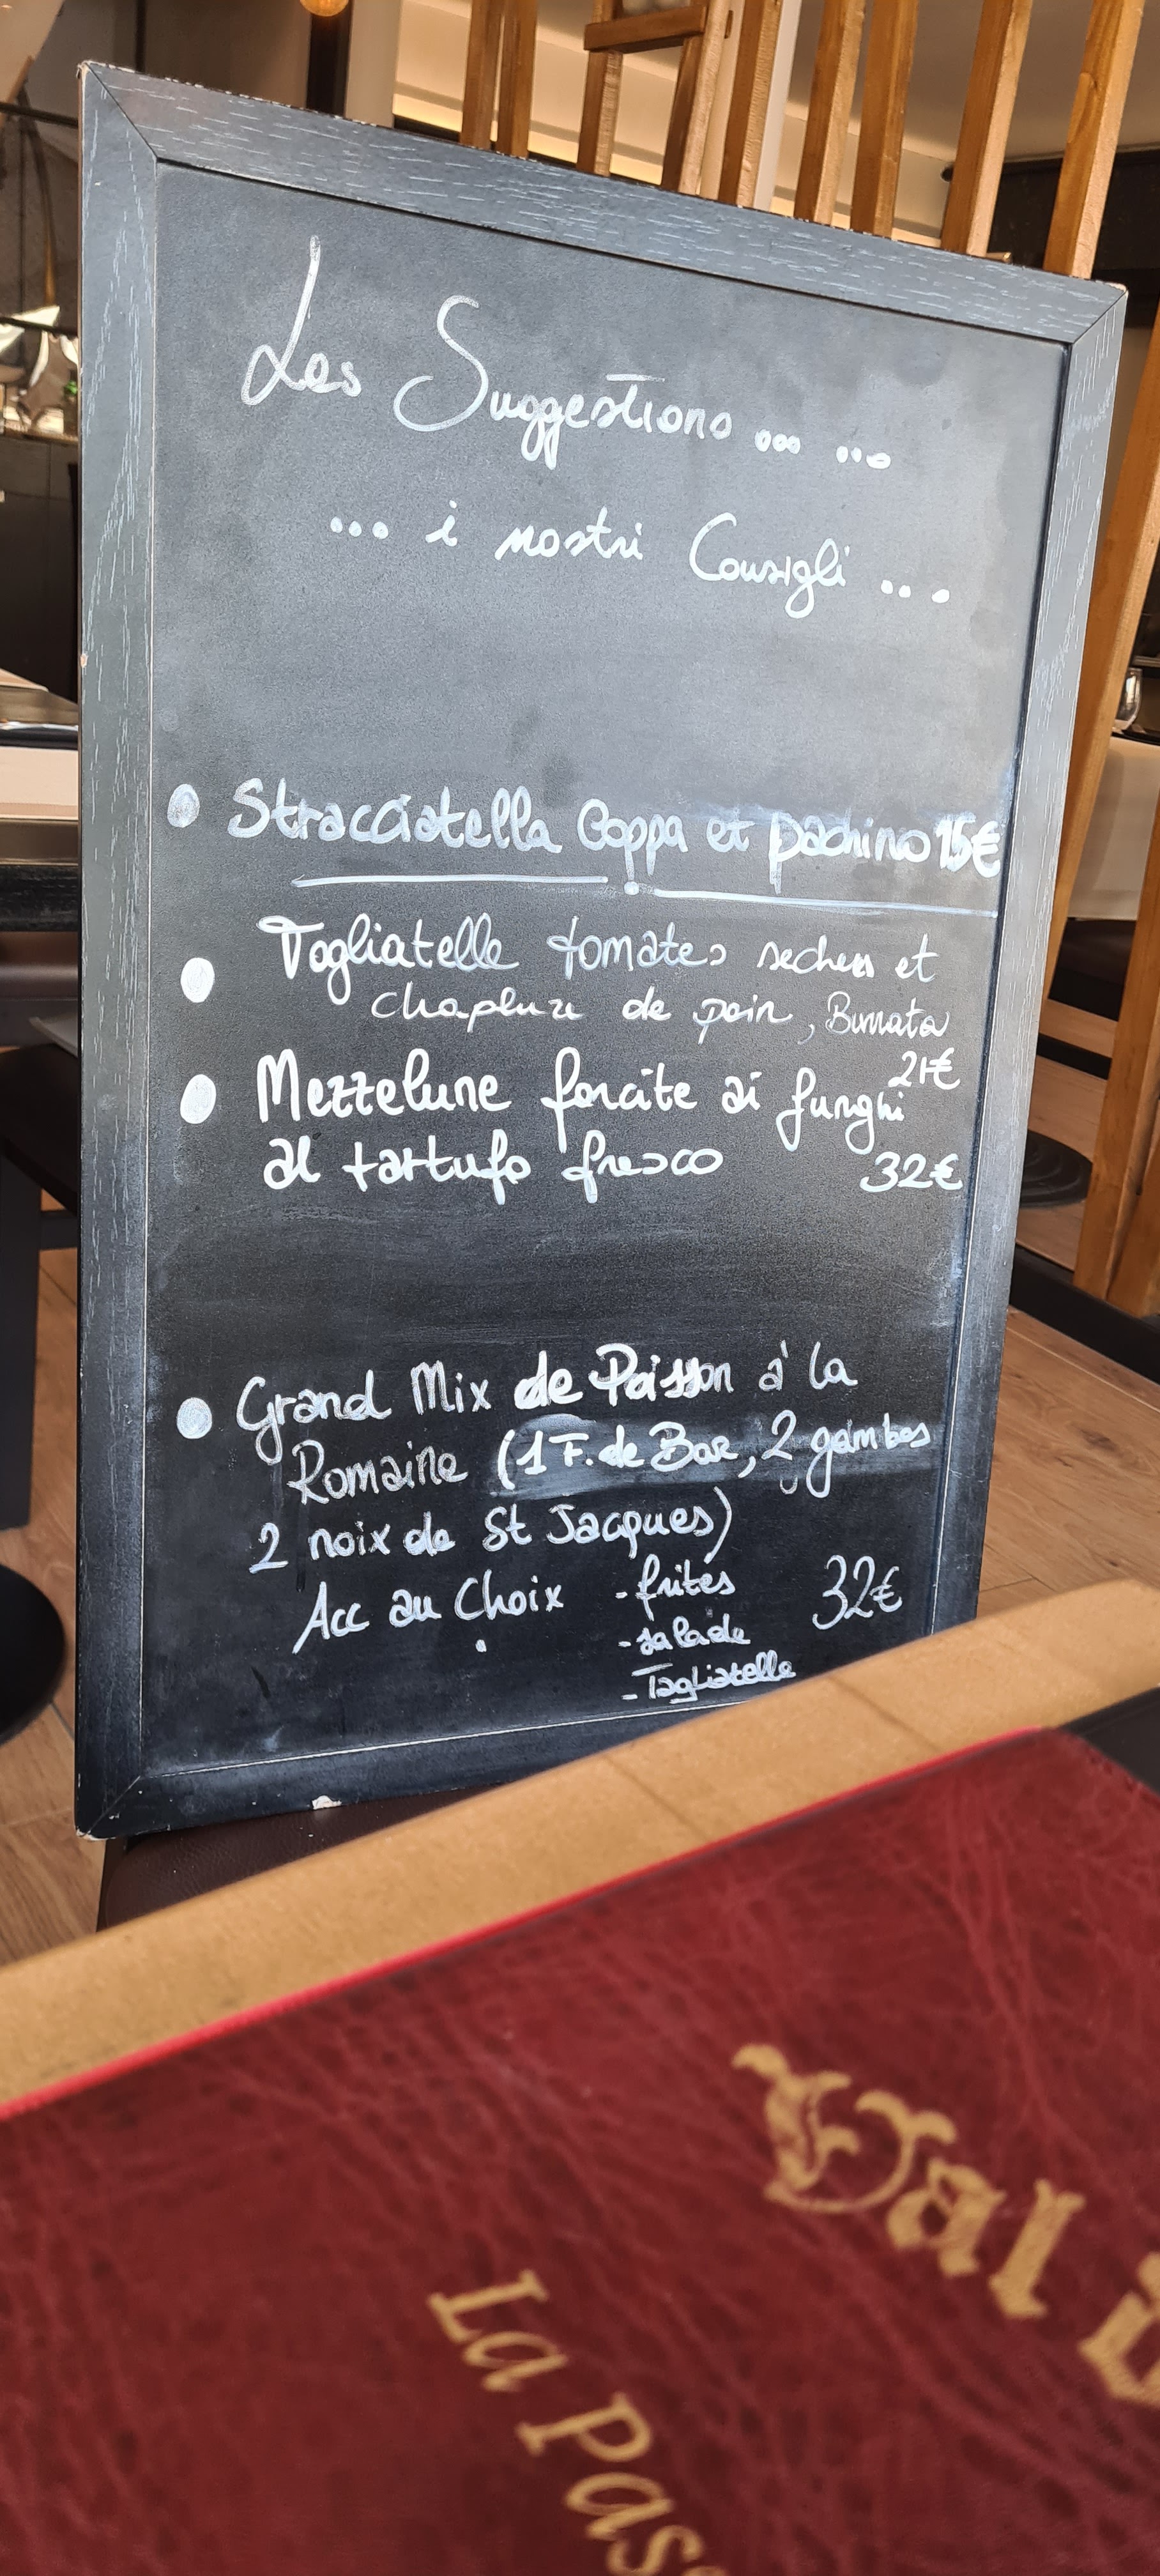 Les Suggestions ... ...
... i nostri Consigli ...
Stracciatella Coppa et pachino 15€
Tagliatelle tomates seches et
chapelure de pain, Burrata
21€
Mezzelune farcite ai funghi
al tartufo fresco 32€
Grand Mix de Poisson à la
Romaine (1 F. de Bar, 2 gambas
2 noix de St Jacques)
Acc au Choix - frites 32€
- salade
- Tagliatelle
Val
La Pas